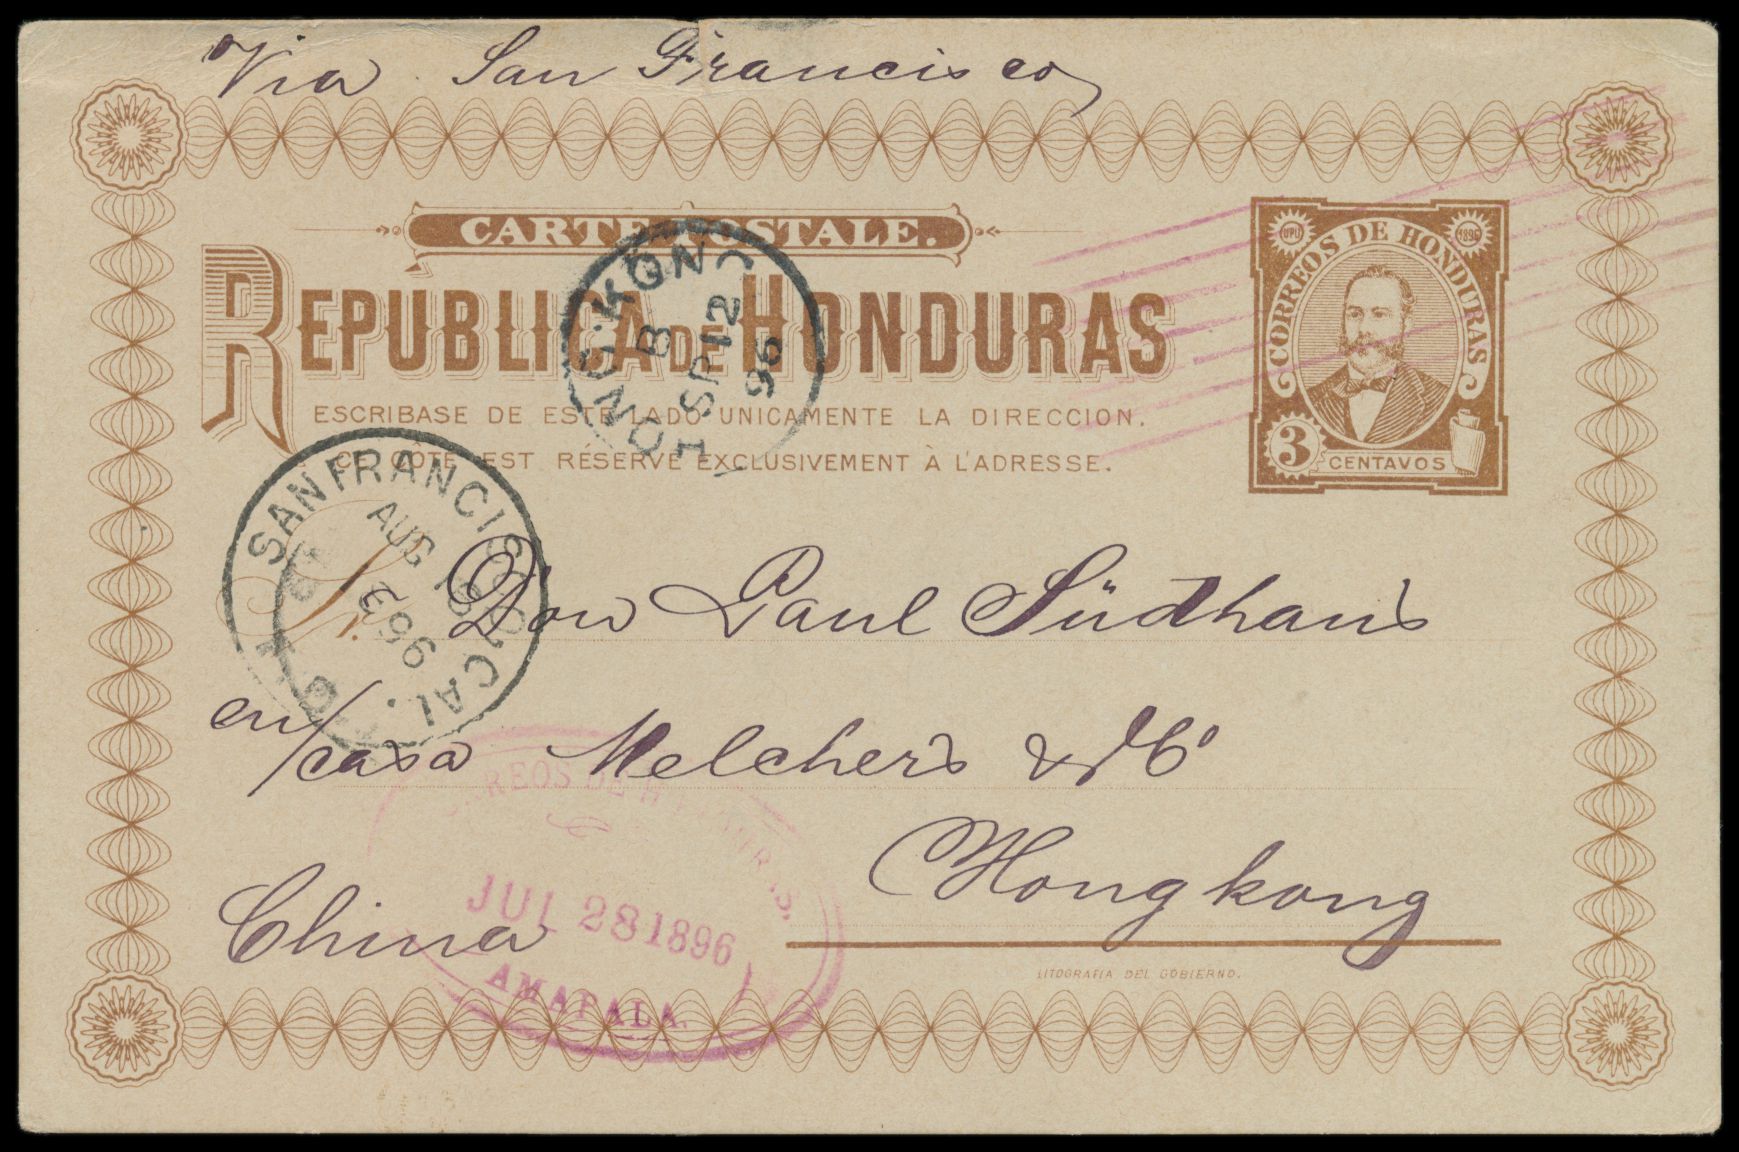 Via San Francisco
CARTE POSTALE.
REPÚBLICA DE HONDURAS
ESCRIBASE DE ESTE LADO UNICAMENTE LA DIRECCION.
CE CÔTÉ EST RÉSERVÉ EXCLUSIVEMENT À L'ADRESSE.
UPU
1896
CORREOS DE HONDURAS
3 CENTAVOS
HONG-KONG
B
SP 12
96
SAN FRANCISCO, CAL.
AUG 19
96
Don Paul Südhaus
en/casa Melchers & Co
Hongkong
China
CORREOS DE HONDURAS.
JUL 28 1896
AMAPALA.
LITOGRAFIA DEL GOBIERNO.